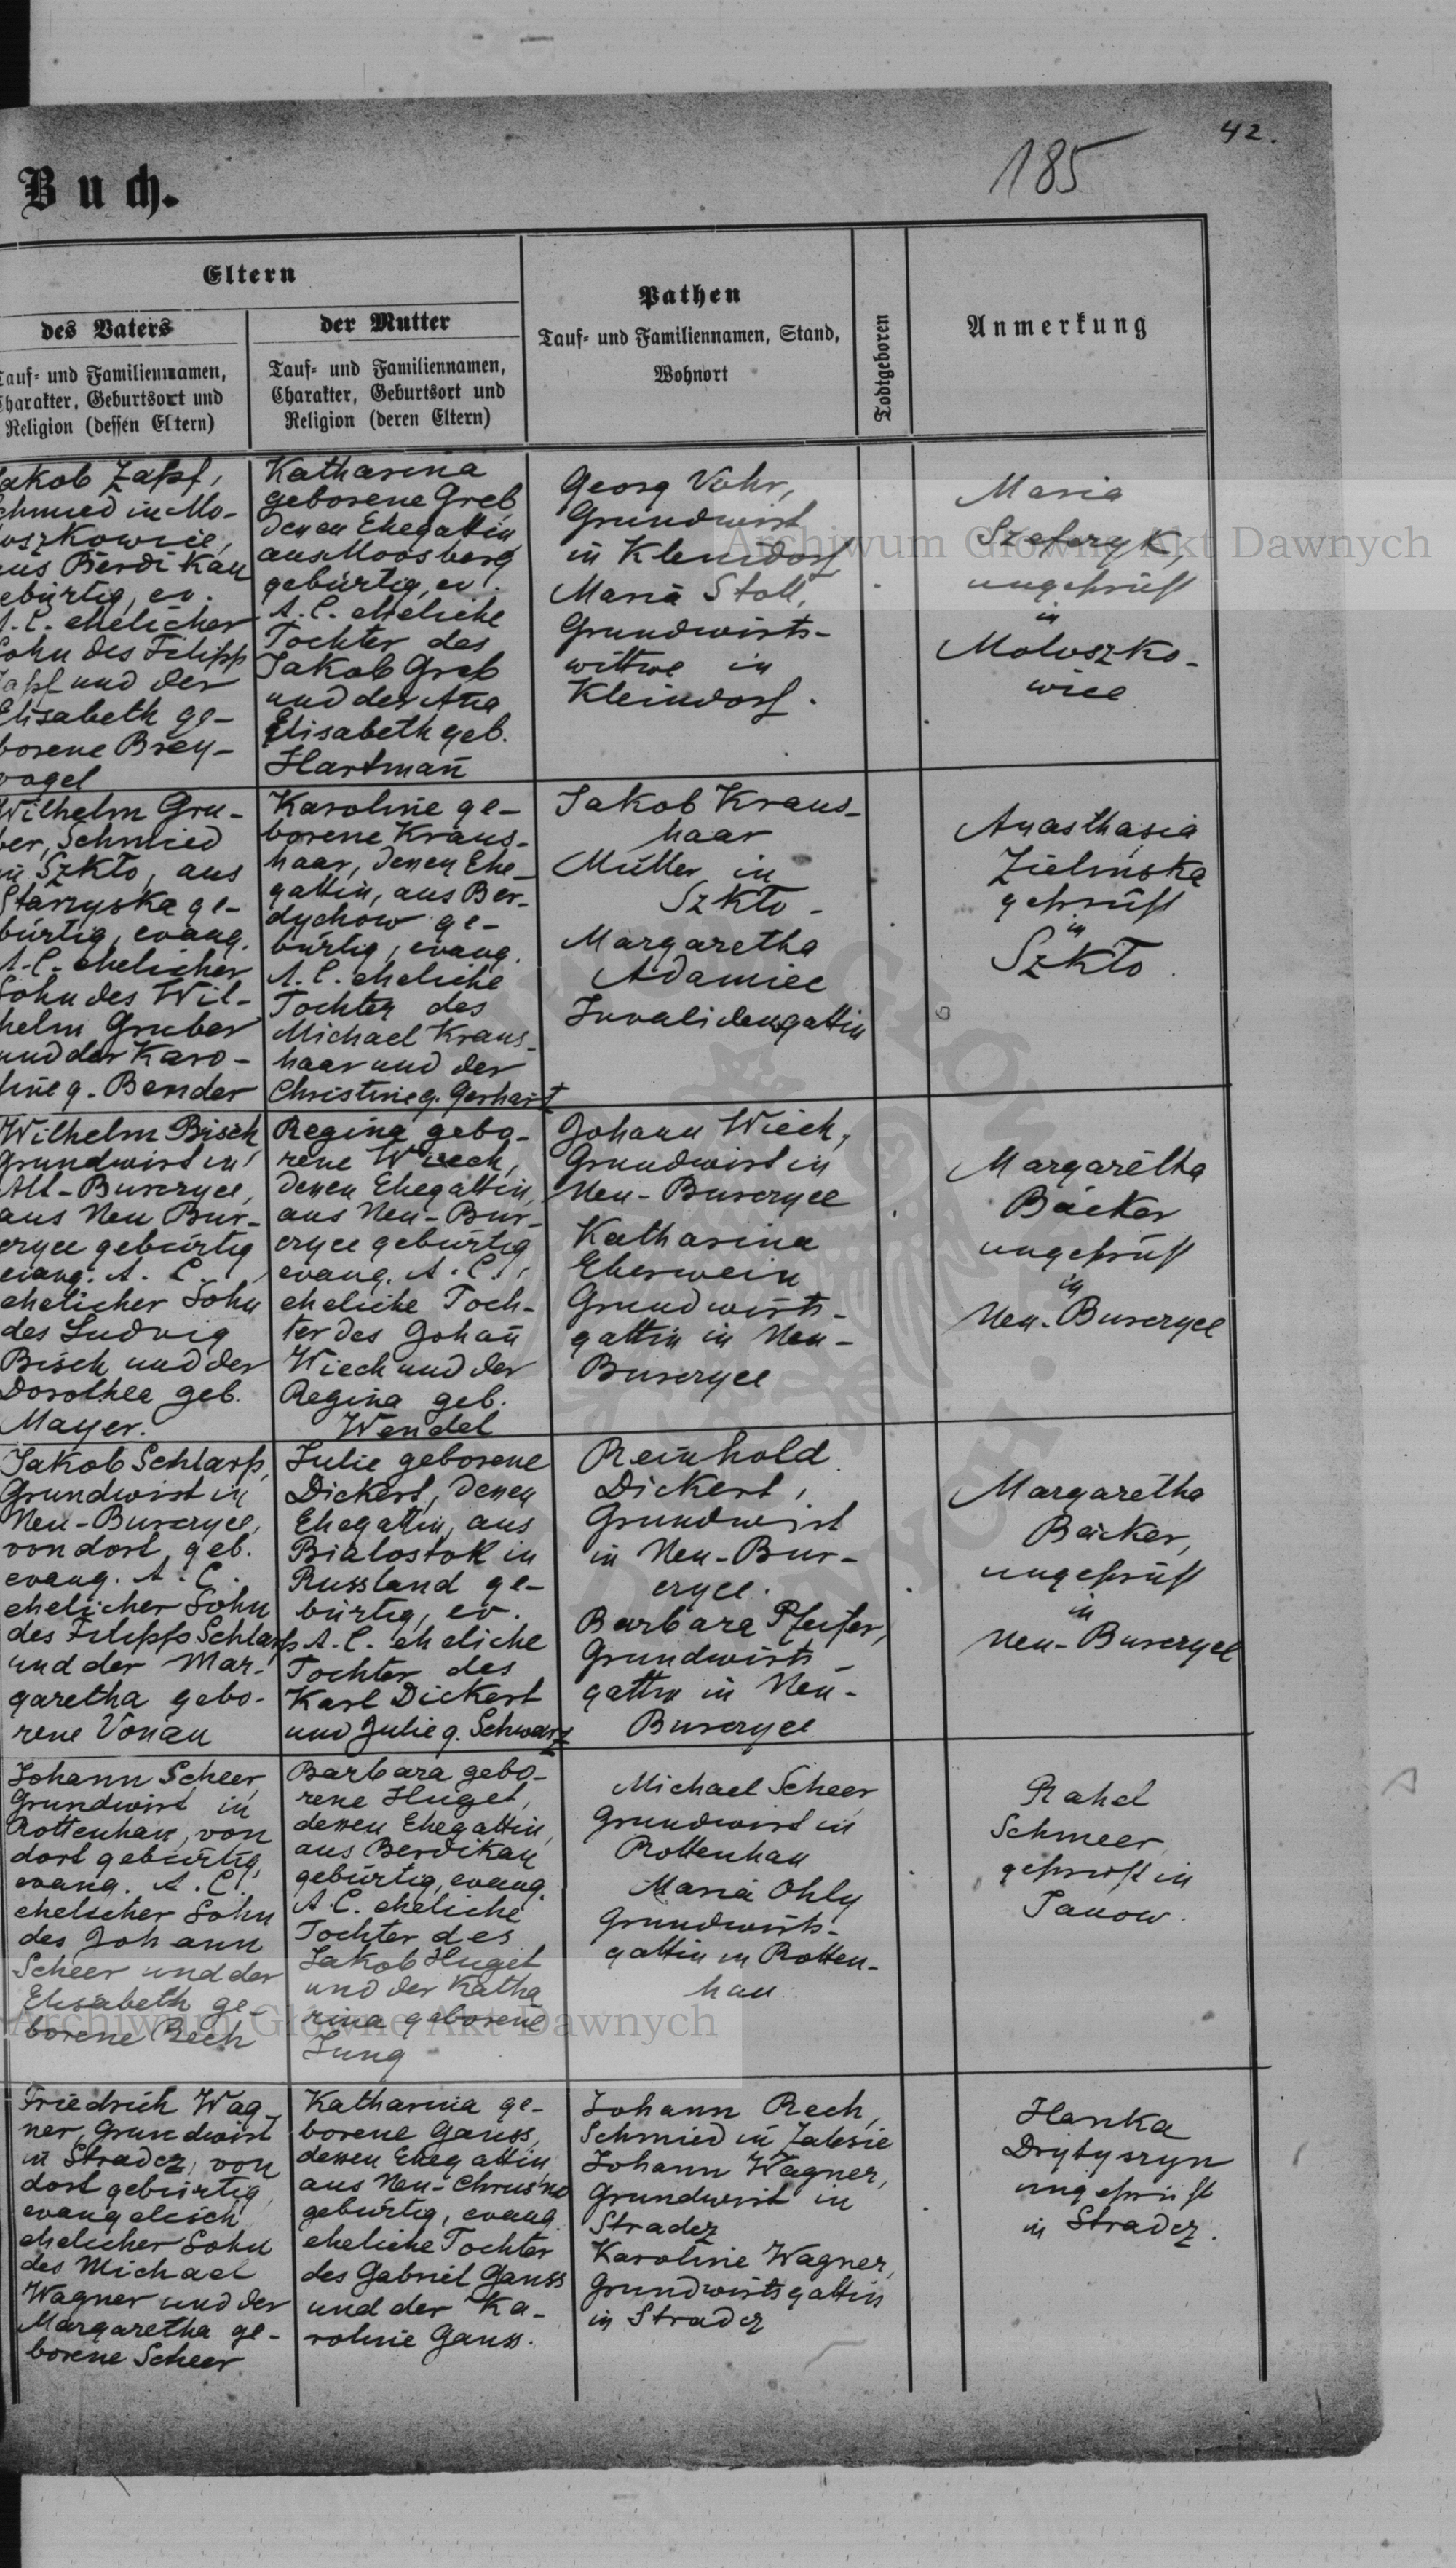 42.
185
Buch.
Eltern
des Vaters
Tauf- und Familiennamen,
Charakter, Geburtsort und
Religion (dessen Eltern)
der Mutter
Tauf- und Familiennamen,
Charakter, Geburtsort und
Religion (deren Eltern)
Pathen
Tauf- und Familiennamen, Stand,
Wohnort
Todtgeboren
Anmerkung
Jakob Zapf,
Schmied in Mo-
loszkowice,
aus Berdikau
gebürtig, ev.
A. C. ehelicher
Sohn des Filipp
Zapf und der
Elisabeth ge-
borene Brey-
vogel
Katharina
geborene Greb
denen Ehegattin
aus Moosberg
gebürtig, ev.
A. C. eheliche
Tochter des
Jakob Greb
und der Aña
Elisabeth geb.
Hartmañ
Georg Vohr,
Grundwirt
in Kleindorf
Maria Stoll,
Grundwirts-
wittwe in
Kleindorf.
Maria
Szeferyk,
ungeprüft
in
Moloszko-
wice
Wilhelm Gru-
ber, Schmied
in Szkło, aus
Starzyska ge-
bürtig, evang.
A. C. ehelicher
Sohn des Wil-
helm Gruber
und der Karo-
line g. Bender
Karoline ge-
borene Kraus-
haar, denen Ehe-
gattin, aus Ber-
dychow ge-
bürtig, evang.
A. C. eheliche
Tochter des
Michael Kraus-
haar und der
Christine g. Gerhart
Jakob Kraus-
haar
Müller in
Szkło
Margaretha
Adamiec
Invalidensgattin
Anasthasia
Zielinska
geprüft
in
Szkło.
Wilhelm Bisch
Grundwirt in
Alt-Bunczyce,
aus Neu Bun-
czyce gebürtig
evang. A. C.,
ehelicher Sohn
des Ludwig
Bisch und der
Dorothea geb.
Mayer.
Regina gebo-
rene Wiech,
denen Ehegattin,
aus Neu-Bun-
czyce gebürtig
evang. A. C.,
eheliche Toch-
ter des Johañ
Wiech und der
Regina geb.
Wendel
Johann Wiech,
Grundwirt in
Neu-Bunczyce
Katharina
Eberwein
Grundwirts-
gattin in Neu-
Bunczyce
Margaretha
Bäcker
ungeprüft
in
Neu-Bunczyce
Jakob Schlarp,
Grundwirt in
Neu-Bunczyce,
von dort geb.
evang. A. C.
ehelicher Sohn
des Filipp Schlarp
und der Mar-
garetha gebo-
rene Vonau
Julie geborene
Dickert, denen
Ehegattin, aus
Bialostok in
Russland ge-
bürtig, ev.
A. C. eheliche
Tochter des
Karl Dickert
und Julie g. Schwarz
Reinhold
Dickert,
Grundwirt
in Neu-Bun-
czyce.
Barbara Pfeifer,
Grundwirts-
gattin in Neu-
Bunczyce
Margaretha
Bäcker,
ungeprüft
in
Neu-Bunczyce
Johann Scheer
Grundwirt in
Rottenhan, von
dort gebürtig,
evang. A. C.
ehelicher Sohn
des Johann
Scheer und der
Elisabeth ge-
borene Rech
Barbara gebo-
rene Huget,
dessen Ehegattin,
aus Berdikau
gebürtig, evang.
A. C. eheliche
Tochter des
Jakob Huget
und der Katha
rina geborene
Jung
Michael Scheer
Grundwirt in
Rottenhan
Maria Ohly
Grundwirts-
gattin in Rotten-
han
Rahel
Schmeer
geprüft in
Janow.
Friedrich Wag-
ner, Grundwirt
in Stradcz, von
dort gebürtig,
evangelisch
ehelicher Sohn
des Michael
Wagner und der
Margaretha ge-
borene Scheer
Katharina ge-
borene Gauss,
dessen Ehegattin
aus Neu-Chrusno
gebürtig, evang.
eheliche Tochter
des Gabriel Gauss
und der Ka-
roline Gauss.
Johann Rech,
Schmied in Zalesie
Johann Wagner,
Grundwirt in
Stradcz
Karoline Wagner,
Grundwirtsgattin
in Stradcz
Hanka
ungeprüft
in Stradcz.
Archiwum Główne Akt Dawnych
Archiwum Główne Akt Dawnych